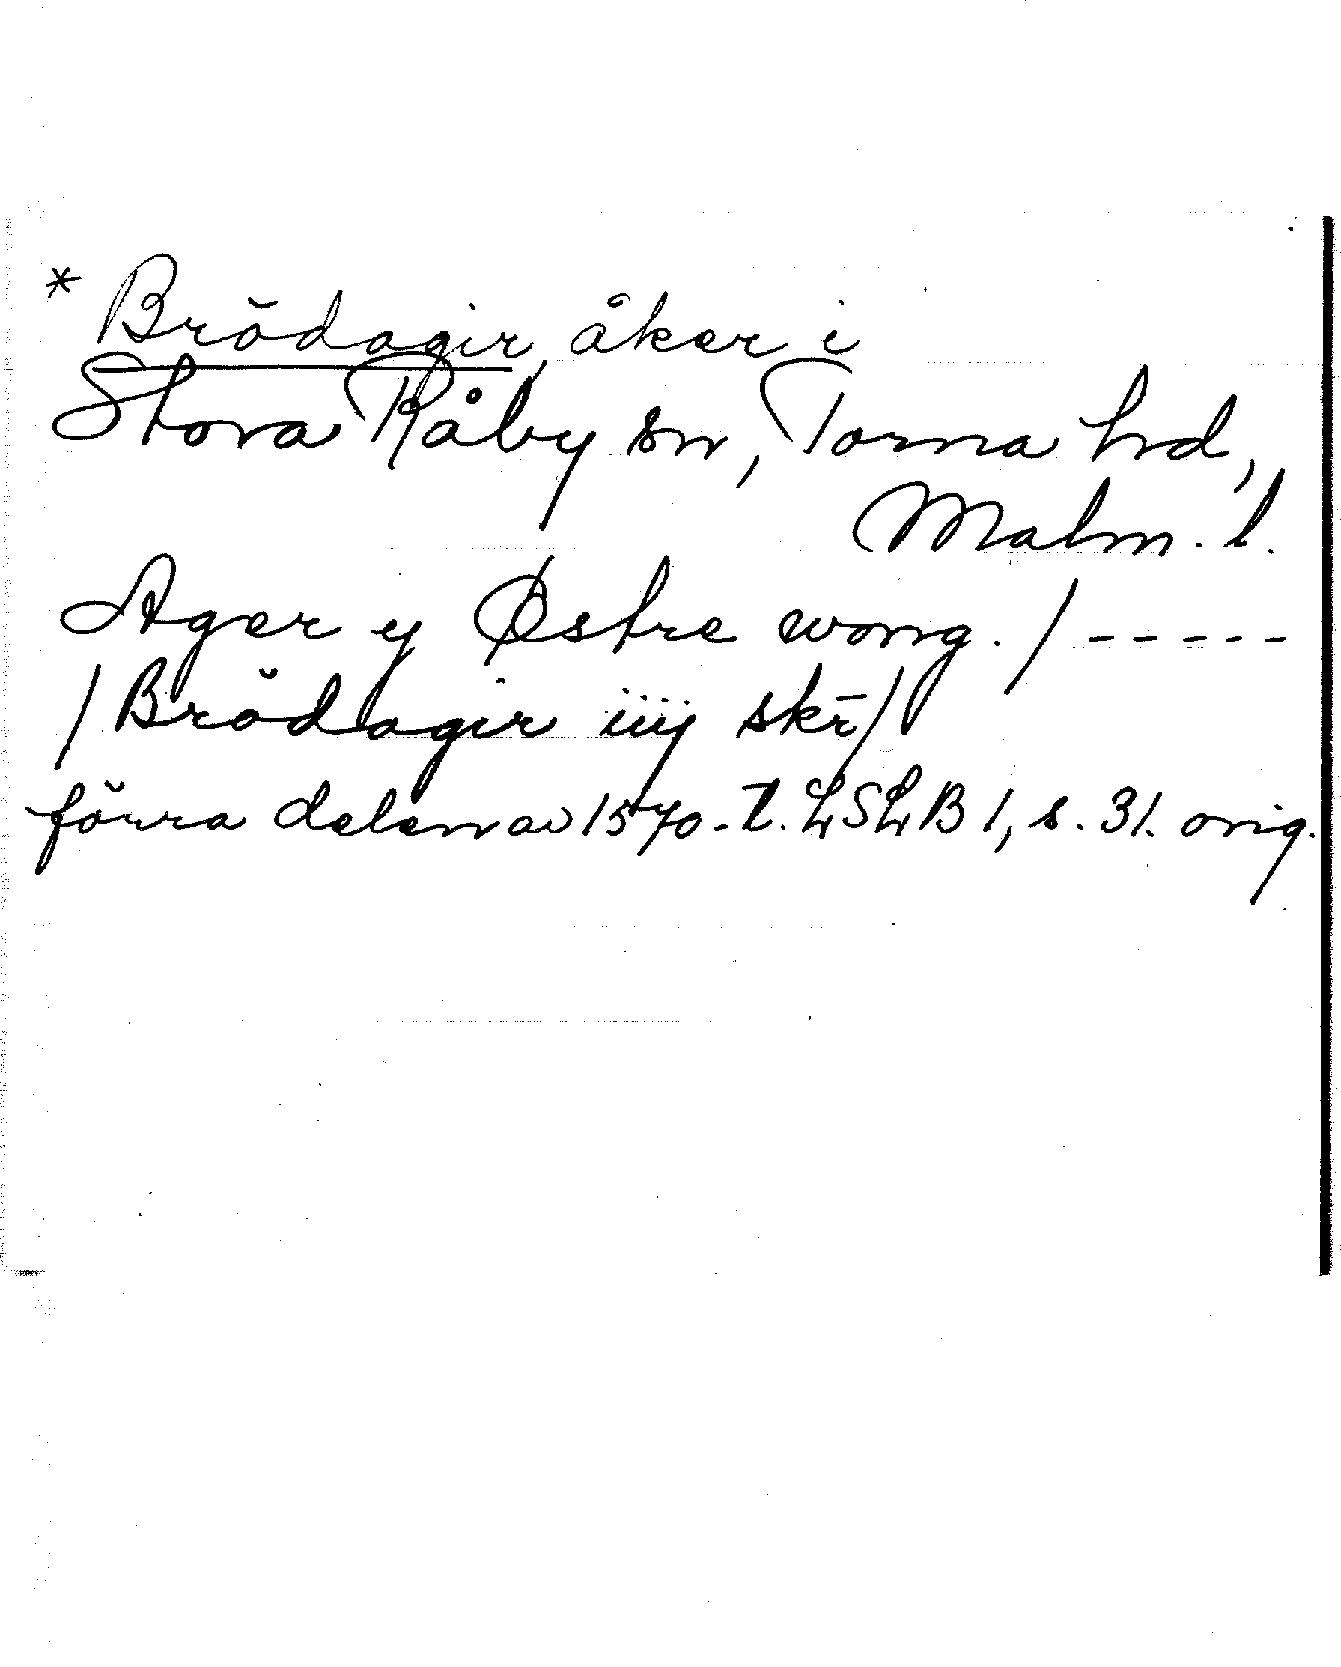 * Brödagir, åker i
Stora Råby sn, Torna hd,
Malm. l.
Ager y Østre wong. / - - - - -
/ Brödagir iiij skr̄ /
förra delen av 1570-t. LSLB 1, s. 31. orig.